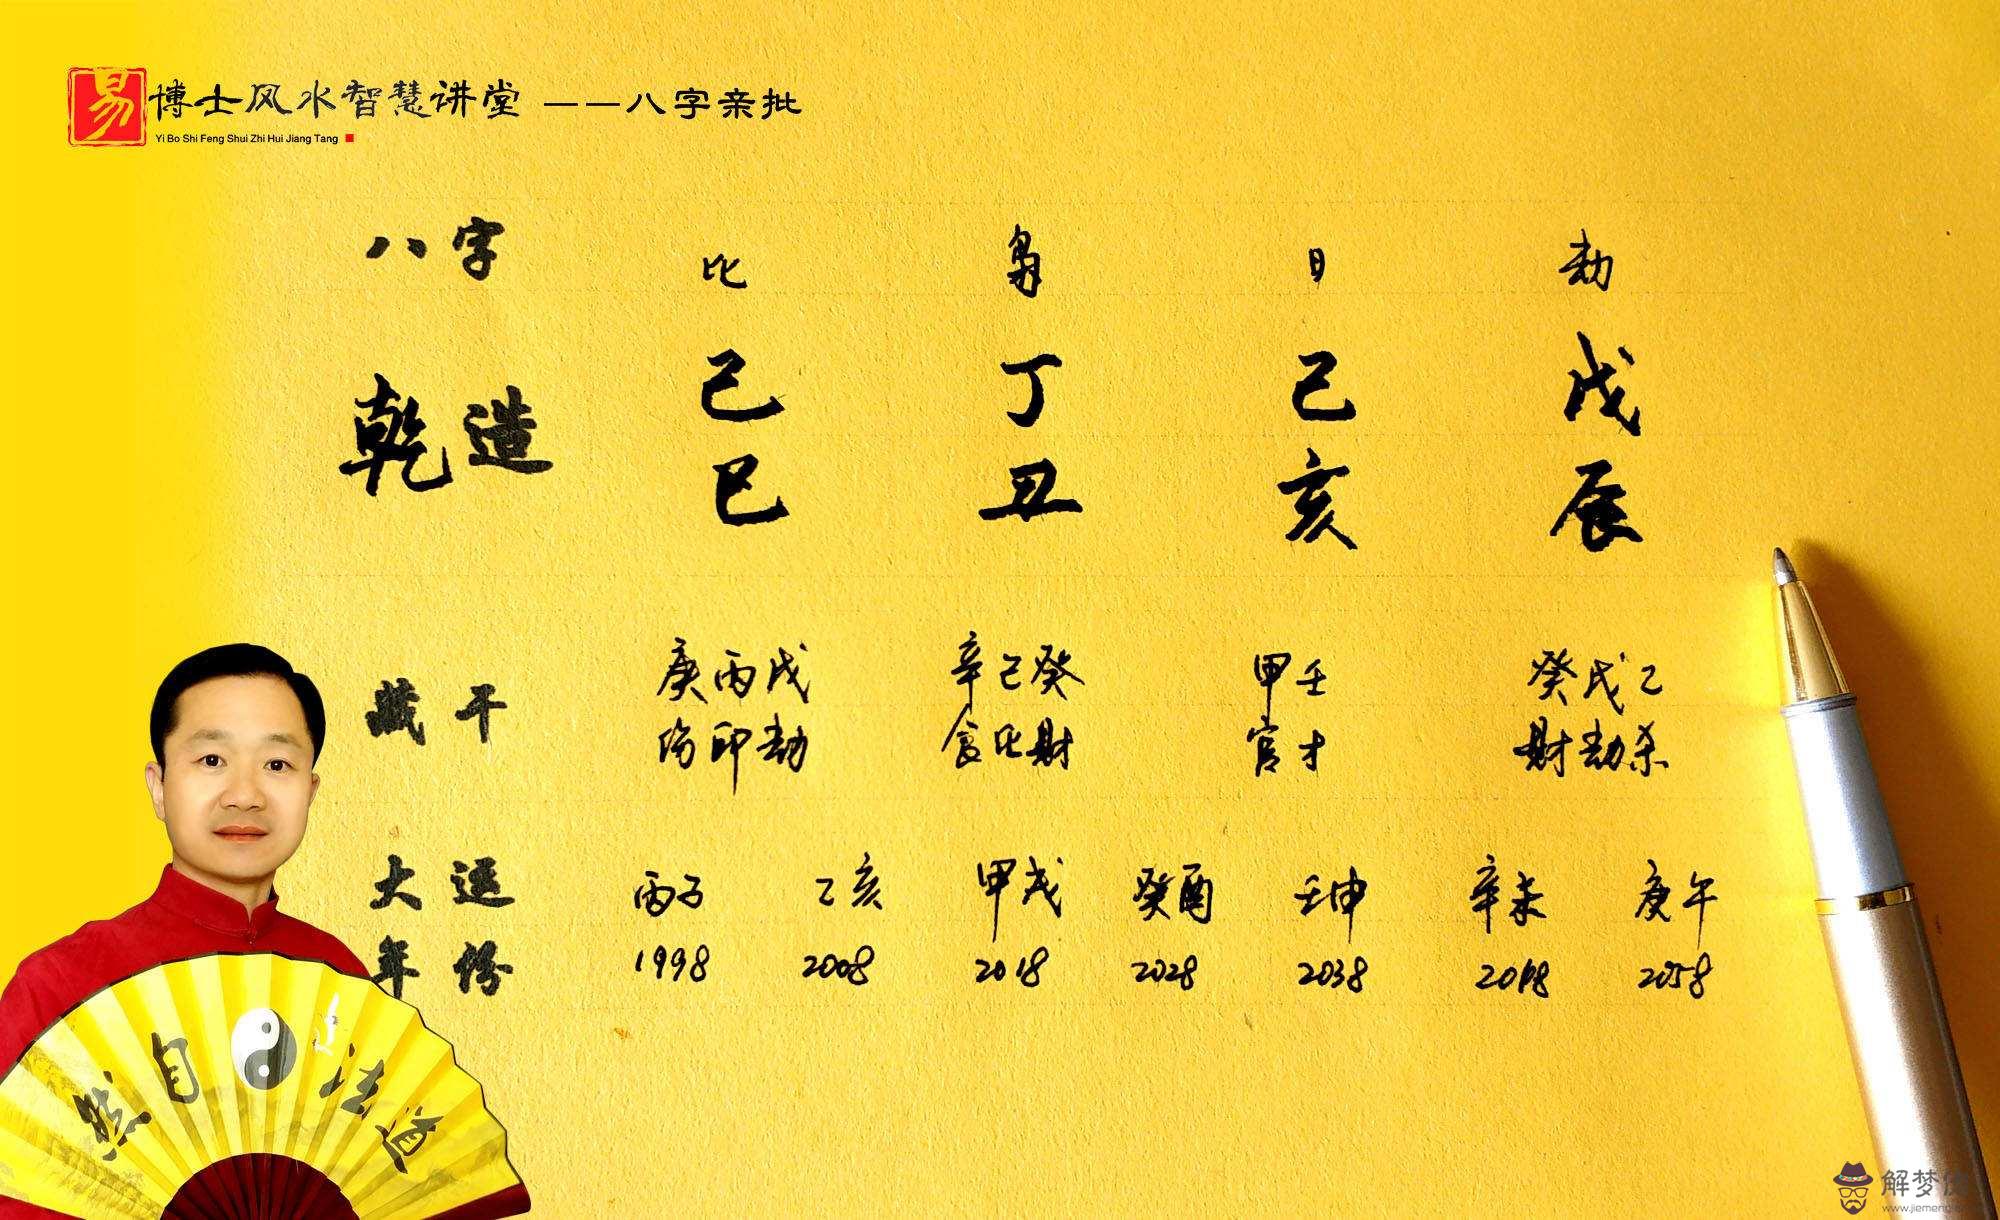 易博士风水智慧讲堂 ——八字亲批
Yi Bo Shi Feng Shui Zhi Hui Jiang Tang
八字 比 枭 日 劫
乾造 己 丁 己 戊
巳 丑 亥 辰
藏干 庚丙戊 辛己癸 甲壬 癸戊乙
伤印劫 食比财 官才 财劫杀
大运 丙子 乙亥 甲戌 癸酉 壬申 辛未 庚午
年份 1998 2008 2018 2028 2038 2048 2058
然自法道
解梦
www.jiemeng